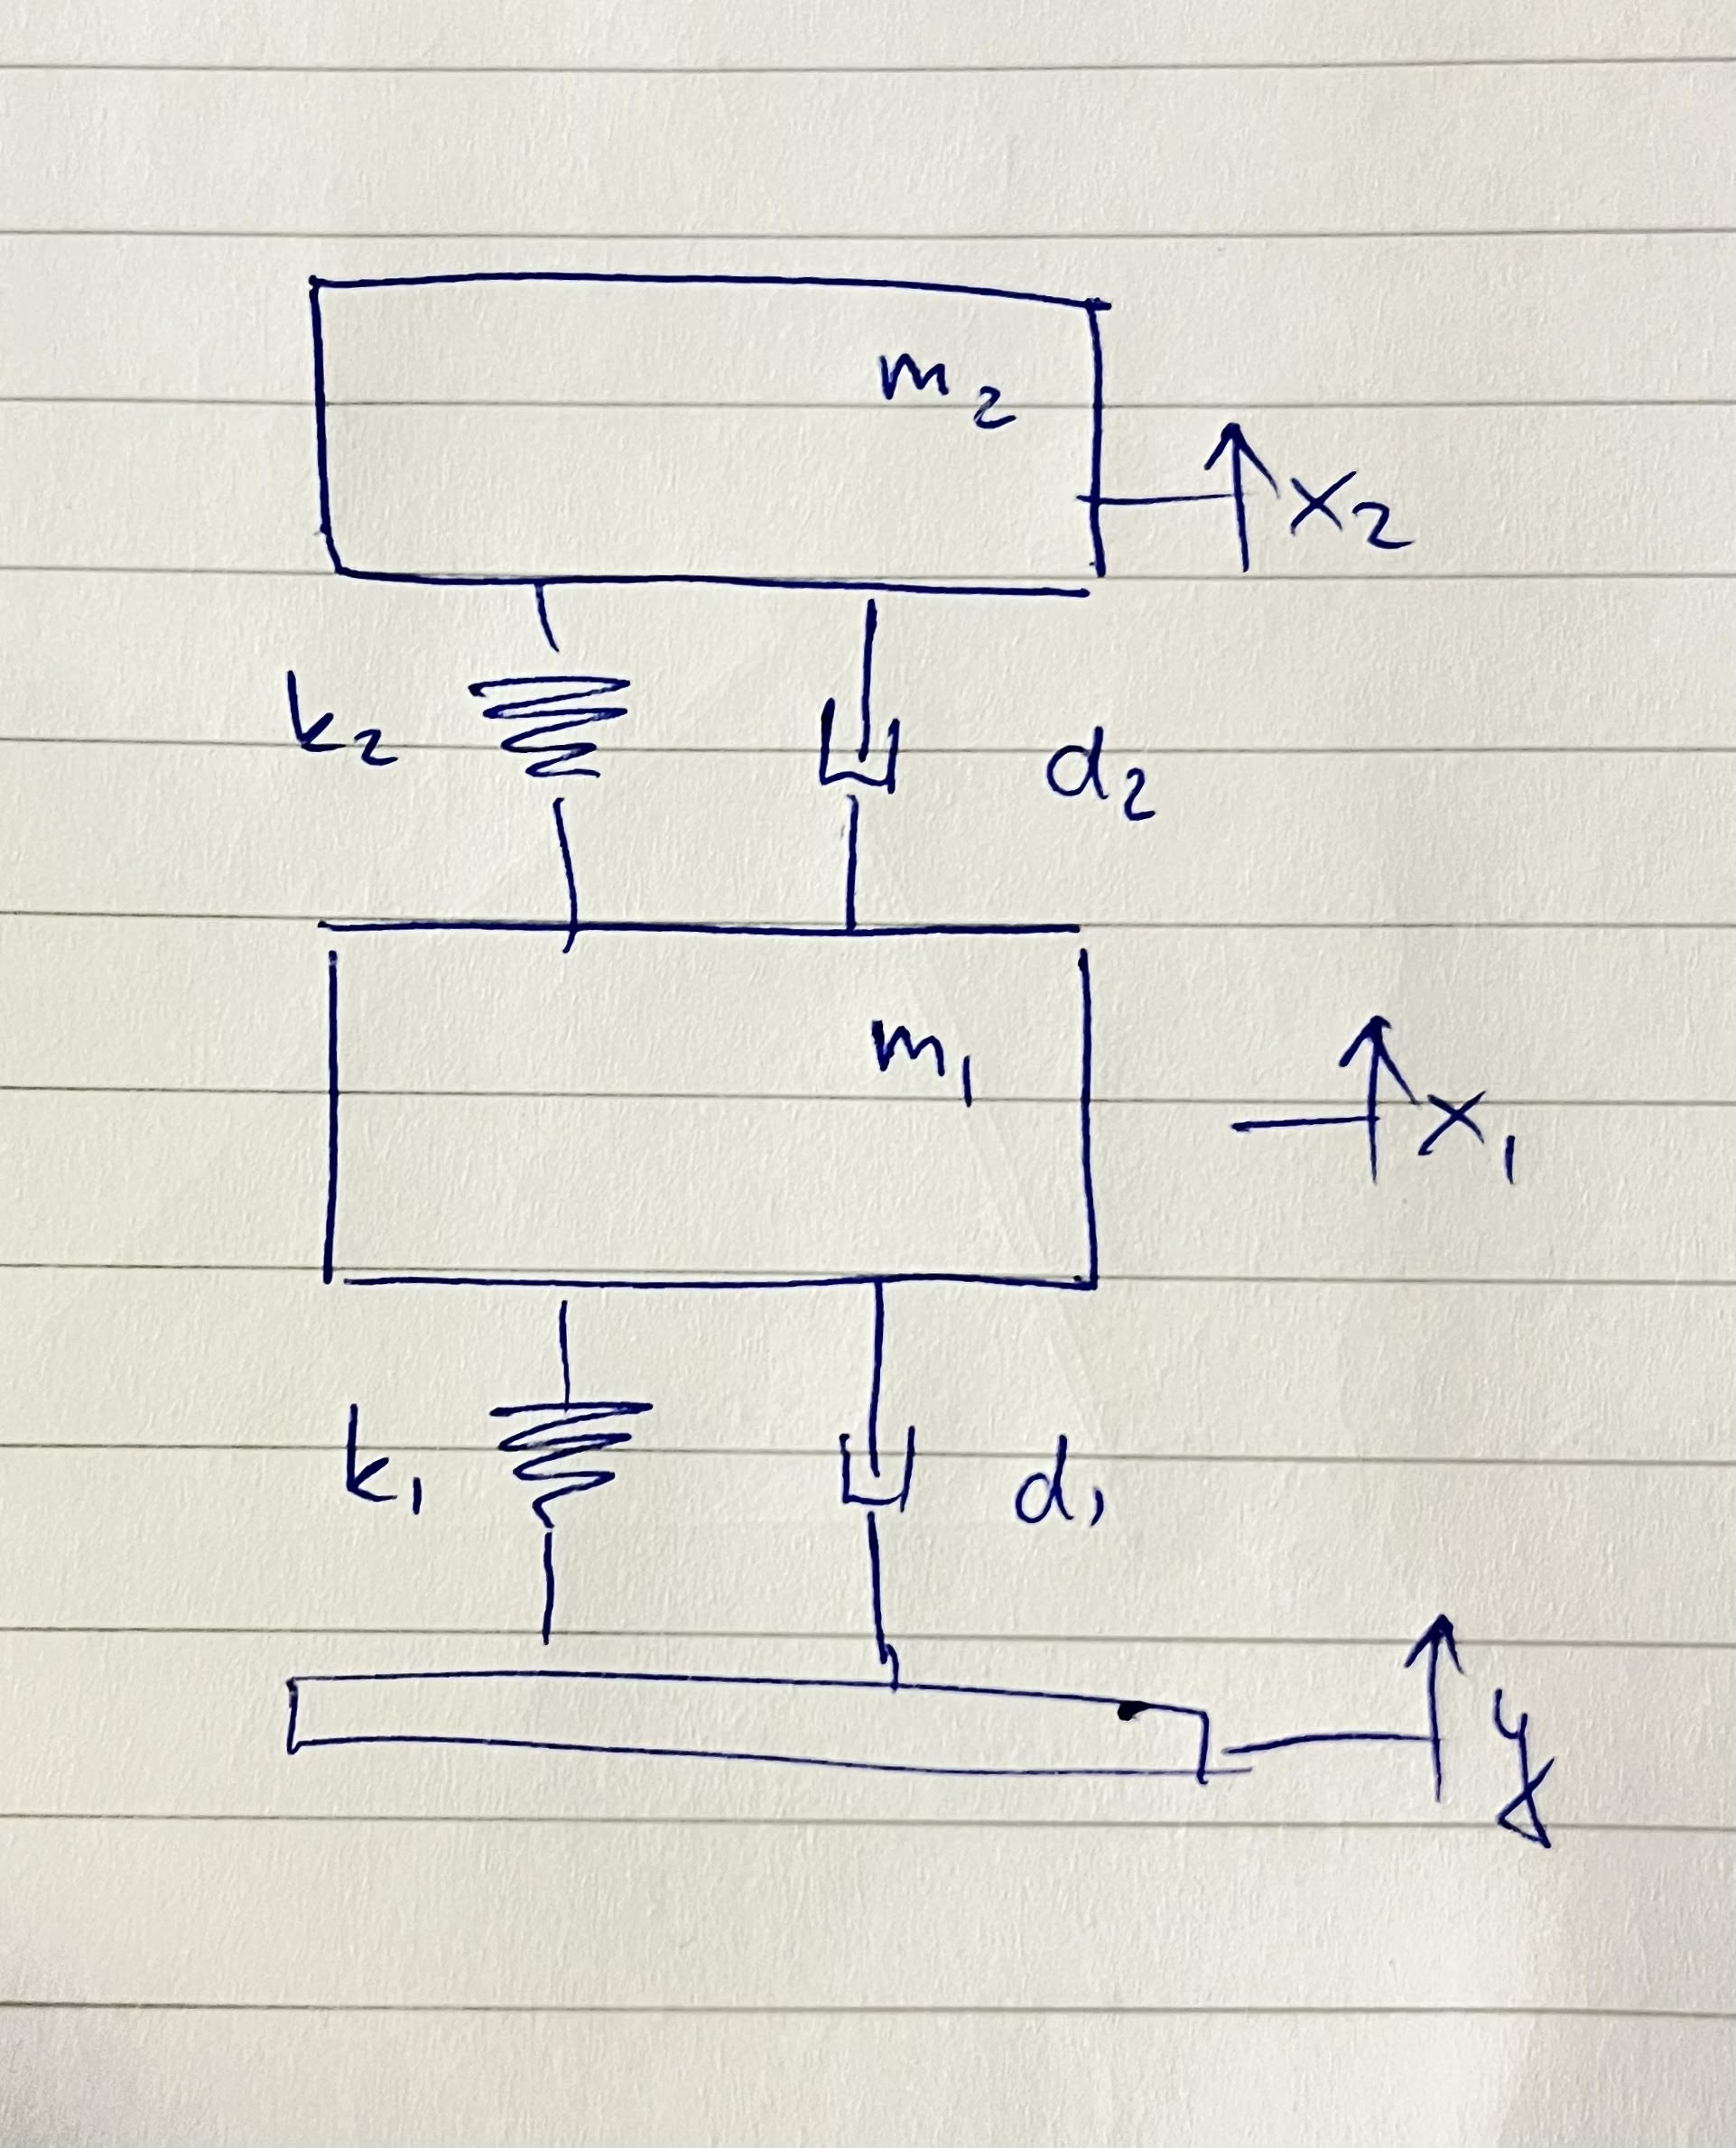 m₂
x₂
k₂ d₂
m₁
x₁
k₁ d₁
y